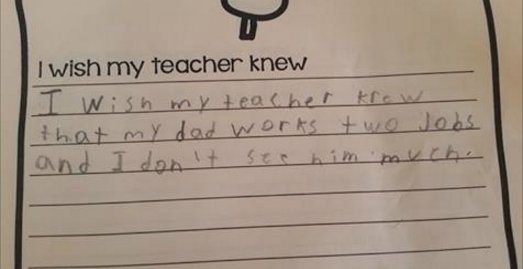 I wish my teacher knew
I wish my teacher krew
that my dad works two Jobs
and I don't see him much.